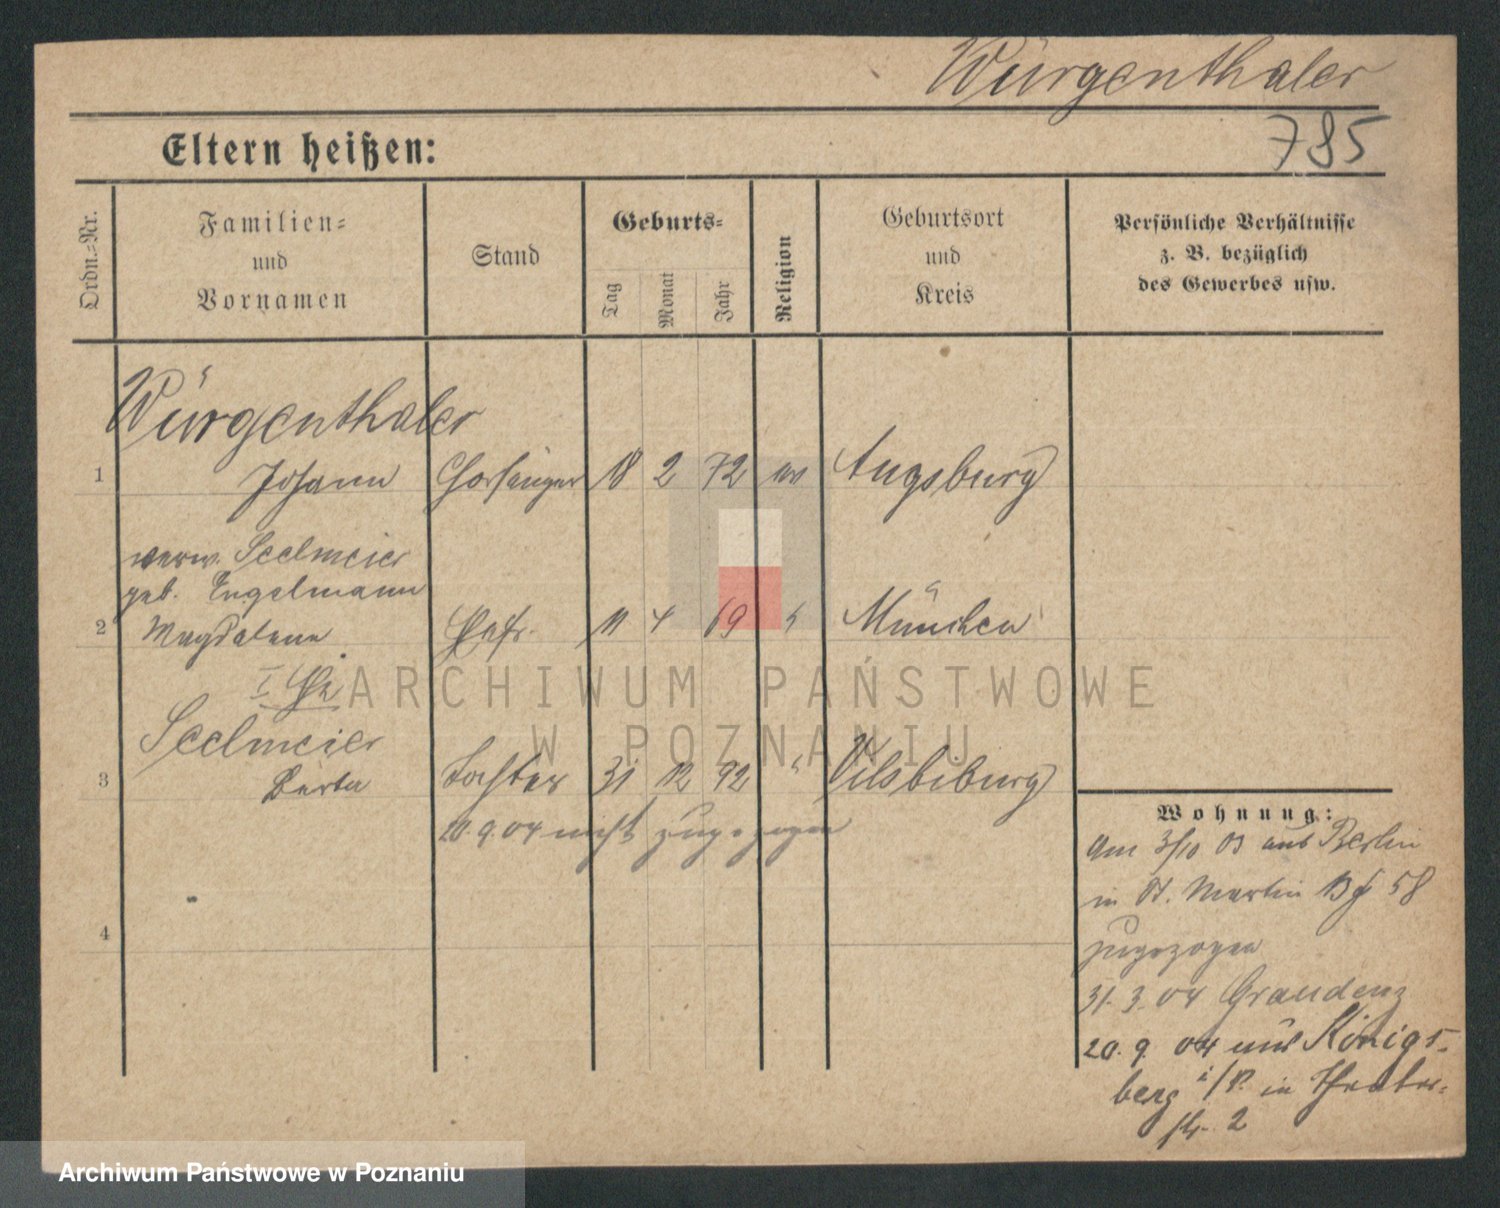 Würgenthaler
785
Eltern heißen:
Ordn.-Nr.
Familien-
und
Vornamen
Stand
Geburts-
Tag
Monat
Jahr
Religion
Geburtsort
und
Kreis
Persönliche Verhältnisse
z. B. bezüglich
des Gewerbes usw.
Würgenthaler
1 Johann Chorsänger 18 2 72 ev Augsburg
verw. Seelmeier
geb. Engelmann
2 Magdalena Ehefr. 11 4 69 " München
I Ehe
Seelmeier
3 Berta Tochter 31 12 92 " Vilsbiburg
20.9.04 nicht zugezogen
4
Wohnung:
Am 3/10 03 aus Berlin
in St. Martin 58
zugezogen
31.3.04 Graudenz
20.9.04 aus Königs-
berg i/P. in Theater-
str. 2
ARCHIWUM PAŃSTWOWE
W POZNANIU
Archiwum Państwowe w Poznaniu